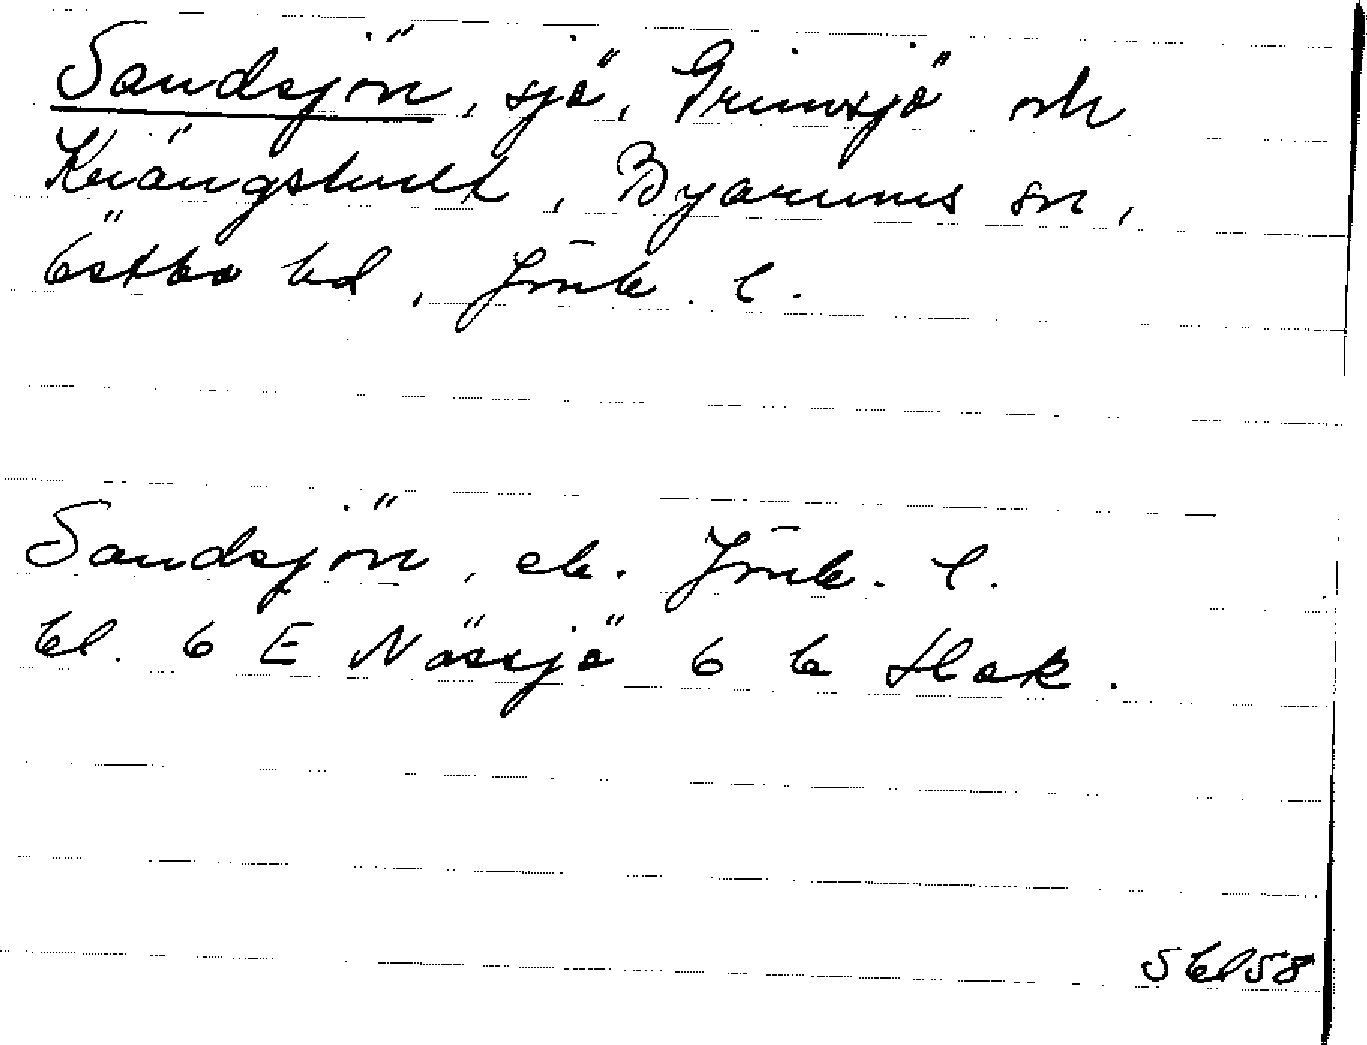 Sandsjön, sjö, Grimsjö och
Kvängshult, Byarums sn,
Östbo hd, Jönk. l.
Sandsjön, ek. Jönk. l.
bl. 6 E Nässjö 6 b Hok.
5 bl 58